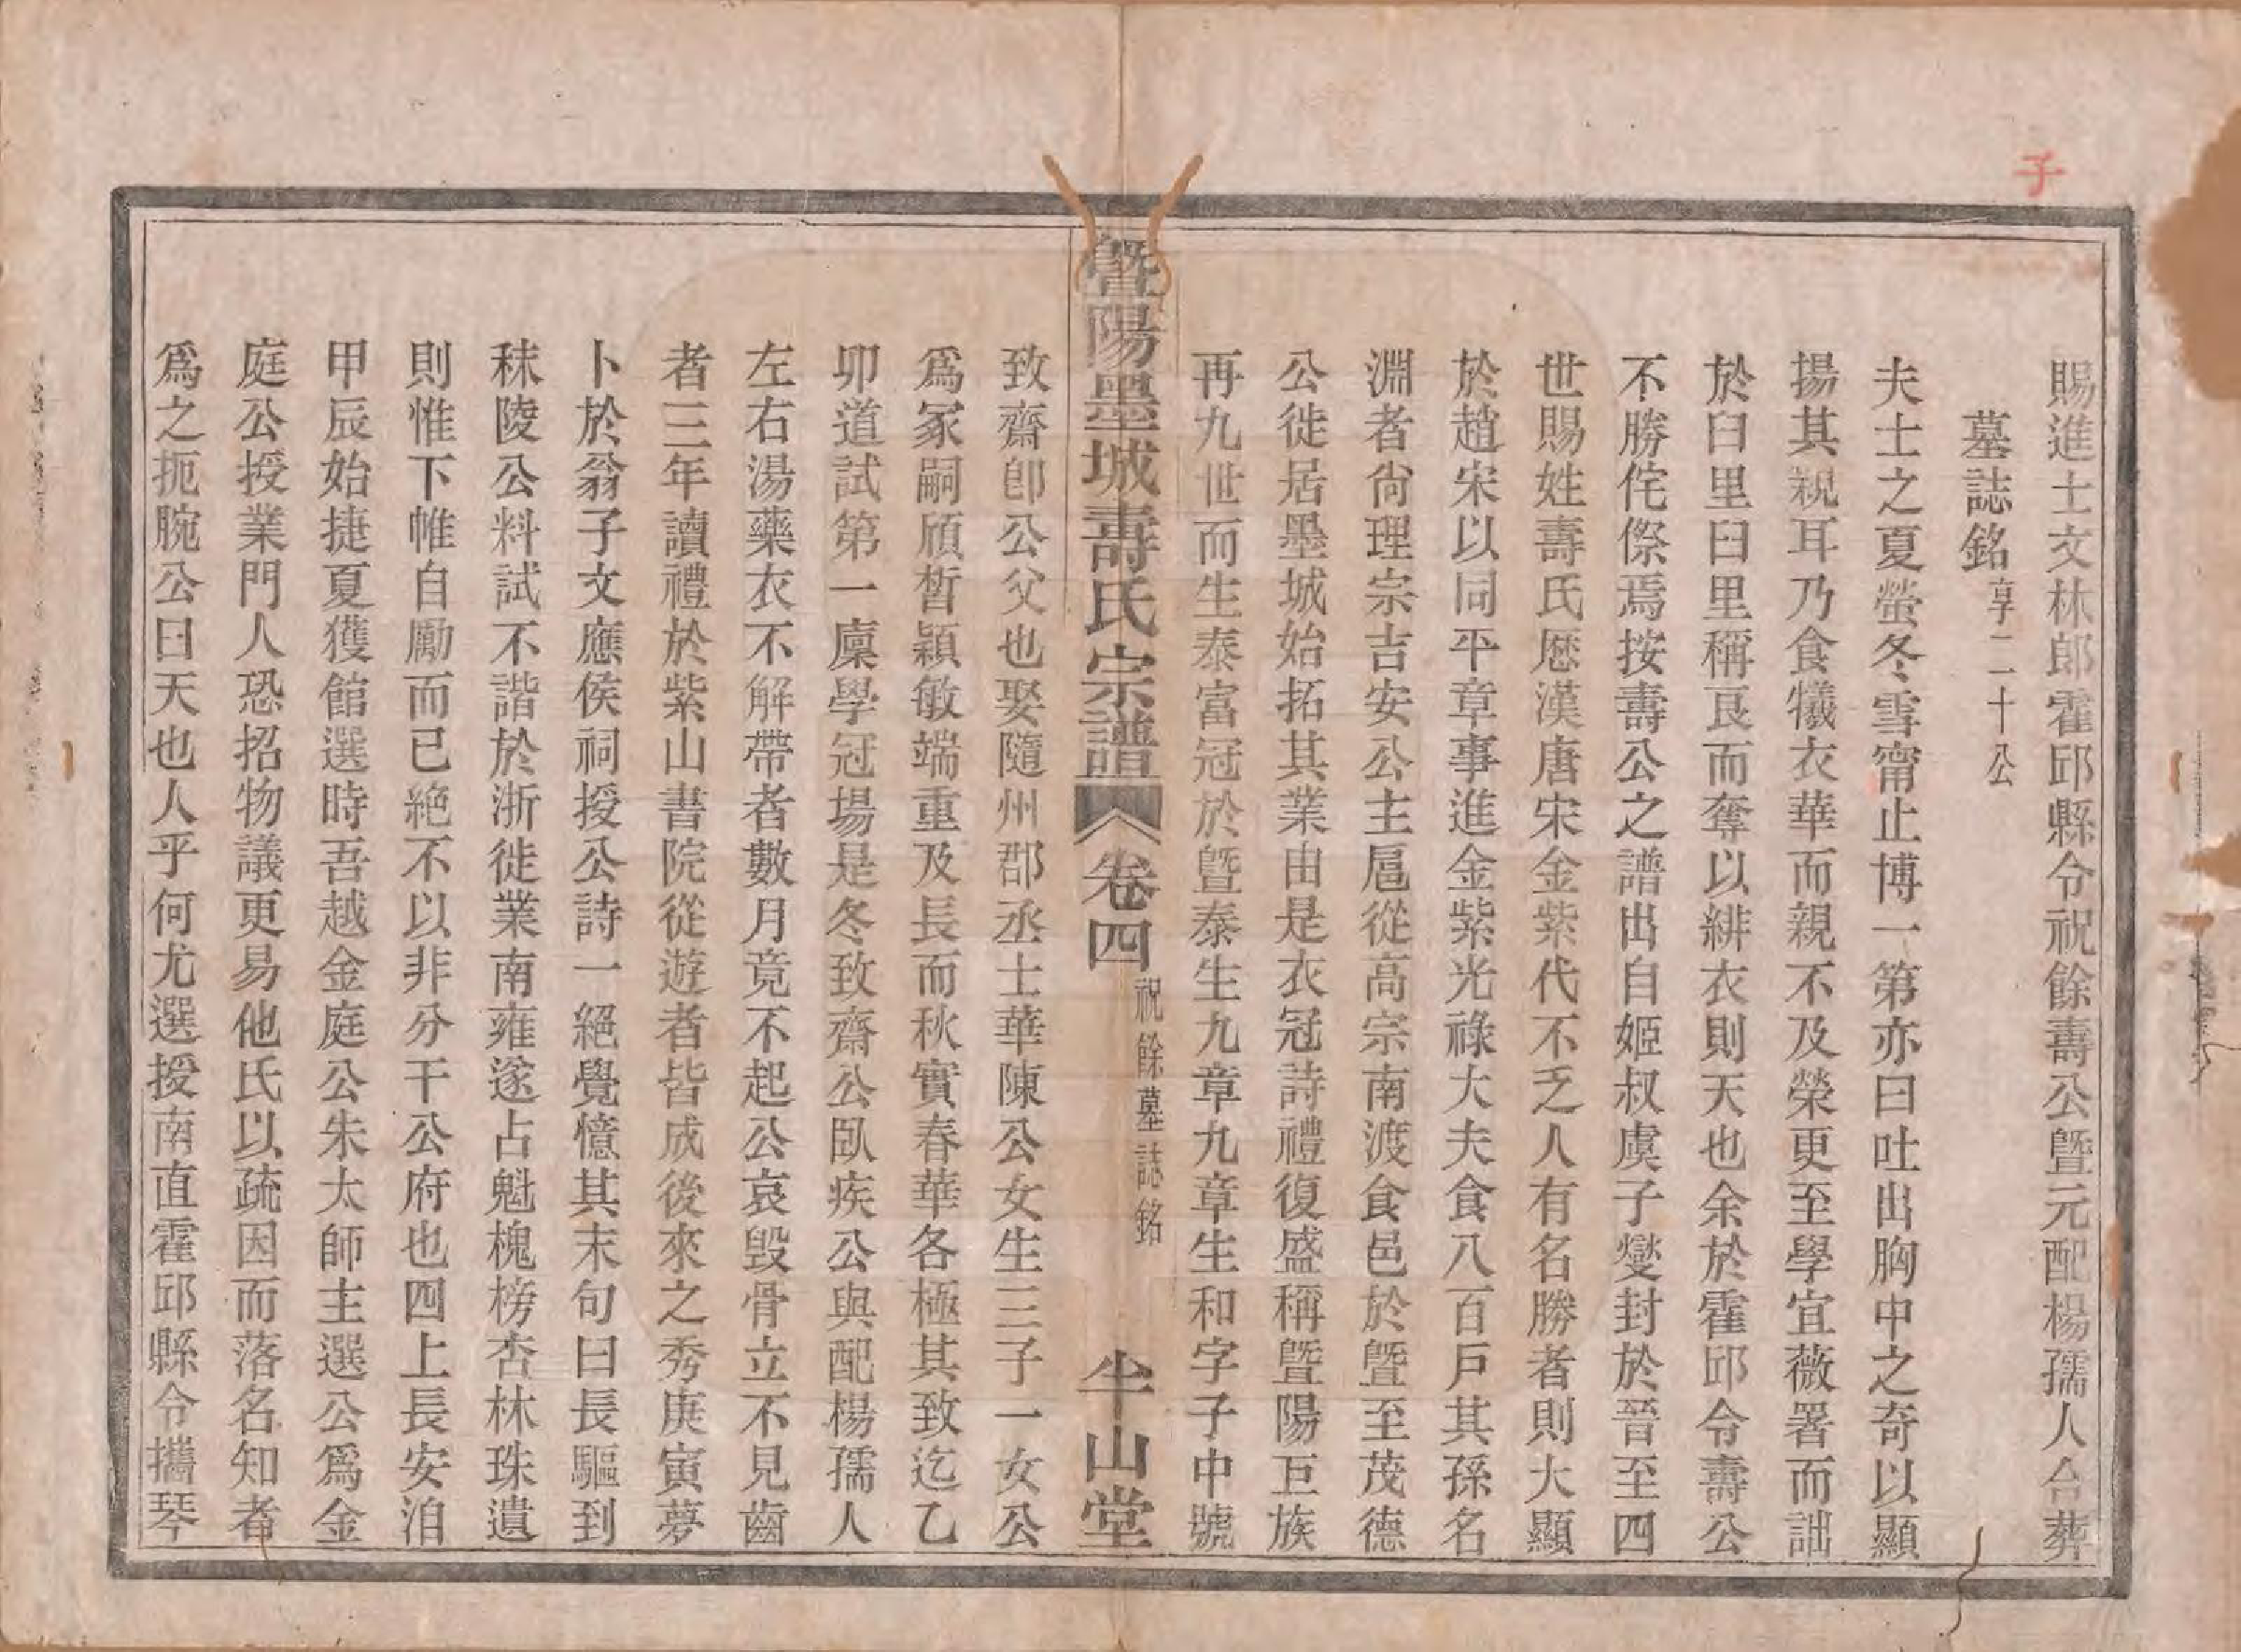 子
賜進士文林郎霍邱縣令祝餘壽公曁元配楊孺人合葬
墓誌銘享二十公
夫士之夏螢冬雪甯止博一第亦曰吐出胸中之奇以顯
揚其親耳乃食犧衣華而親不及榮更至學宜薇署而詘
於臼里臼里稱艮而奪以緋衣則天也余於霍邱令壽公
不勝侘傺焉按壽公之譜出自姬叔虞子燮封於晉至四
世賜姓壽氏厯漢唐宋金紫代不乏人有名勝者則大顯
於趙宋以同平章事進金紫光祿大夫食八百戶其孫名
淵者尙理宗吉安公主扈從高宗南渡食邑於曁至茂德
公徙居墨城始拓其業由是衣冠詩禮復盛稱曁陽巨族
再九世而生泰富冠於曁泰生九章九章生和字子中號
曁陽墨城壽氏宗譜 卷四 祝餘墓誌銘 半山堂
致齋卽公父也娶隨州郡丞士華陳公女生三子一女公
爲冢嗣頎晳穎敏端重及長而秋實春華各極其致迄乙
卯道試第一廩學冠場是冬致齋公臥疾公與配楊孺人
左右湯藥衣不解帶者數月竟不起公哀毀骨立不見齒
者三年讀禮於紫山書院從遊者皆成後來之秀庚寅夢
卜於翁子文應侯祠授公詩一絕覺憶其末句曰長驅到
秣陵公料試不諧於浙徙業南雍遂占魁槐榜杏林珠遺
則惟下帷自勵而已絶不以非分干公府也四上長安洎
甲辰始捷夏獲館選時吾越金庭公朱太師主選公爲金
庭公授業門人恐招物議更易他氏以疏因而落名知者
爲之扼腕公曰天也人乎何尤選授南直霍邱縣令攜琴